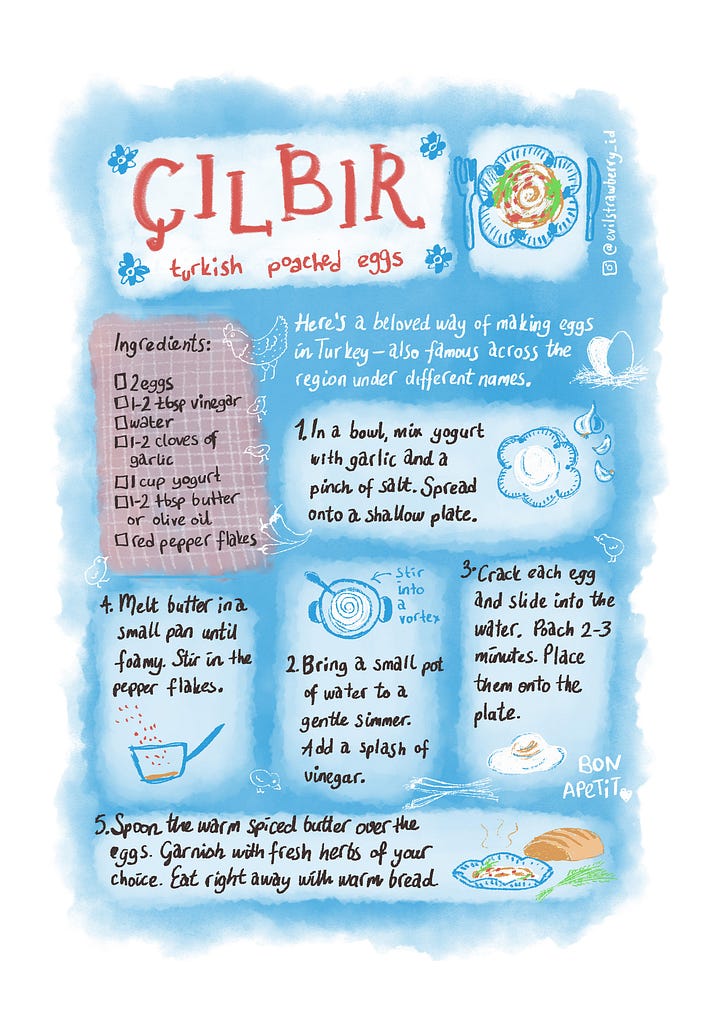 ÇILBIR
turkish poached eggs
@evilstrawberry_id
Here's a beloved way of making eggs
in Turkey – also famous across the
region under different names.
Ingredients:
2 eggs
1-2 tbsp vinegar
water
1-2 cloves of
garlic
1 cup yogurt
1-2 tbsp butter
or olive oil
red pepper flakes
1. In a bowl, mix yogurt
with garlic and a
pinch of salt. Spread
onto a shallow plate.
stir
into
a
vortex
2. Bring a small pot
of water to a
gentle simmer.
Add a splash of
vinegar.
3. Crack each egg
and slide into the
water. Poach 2-3
minutes. Place
them onto the
plate.
4. Melt butter in a
small pan until
foamy. Stir in the
pepper flakes.
5. Spoon the warm spiced butter over the
eggs. Garnish with fresh herbs of your
choice. Eat right away with warm bread.
BON
APETIT